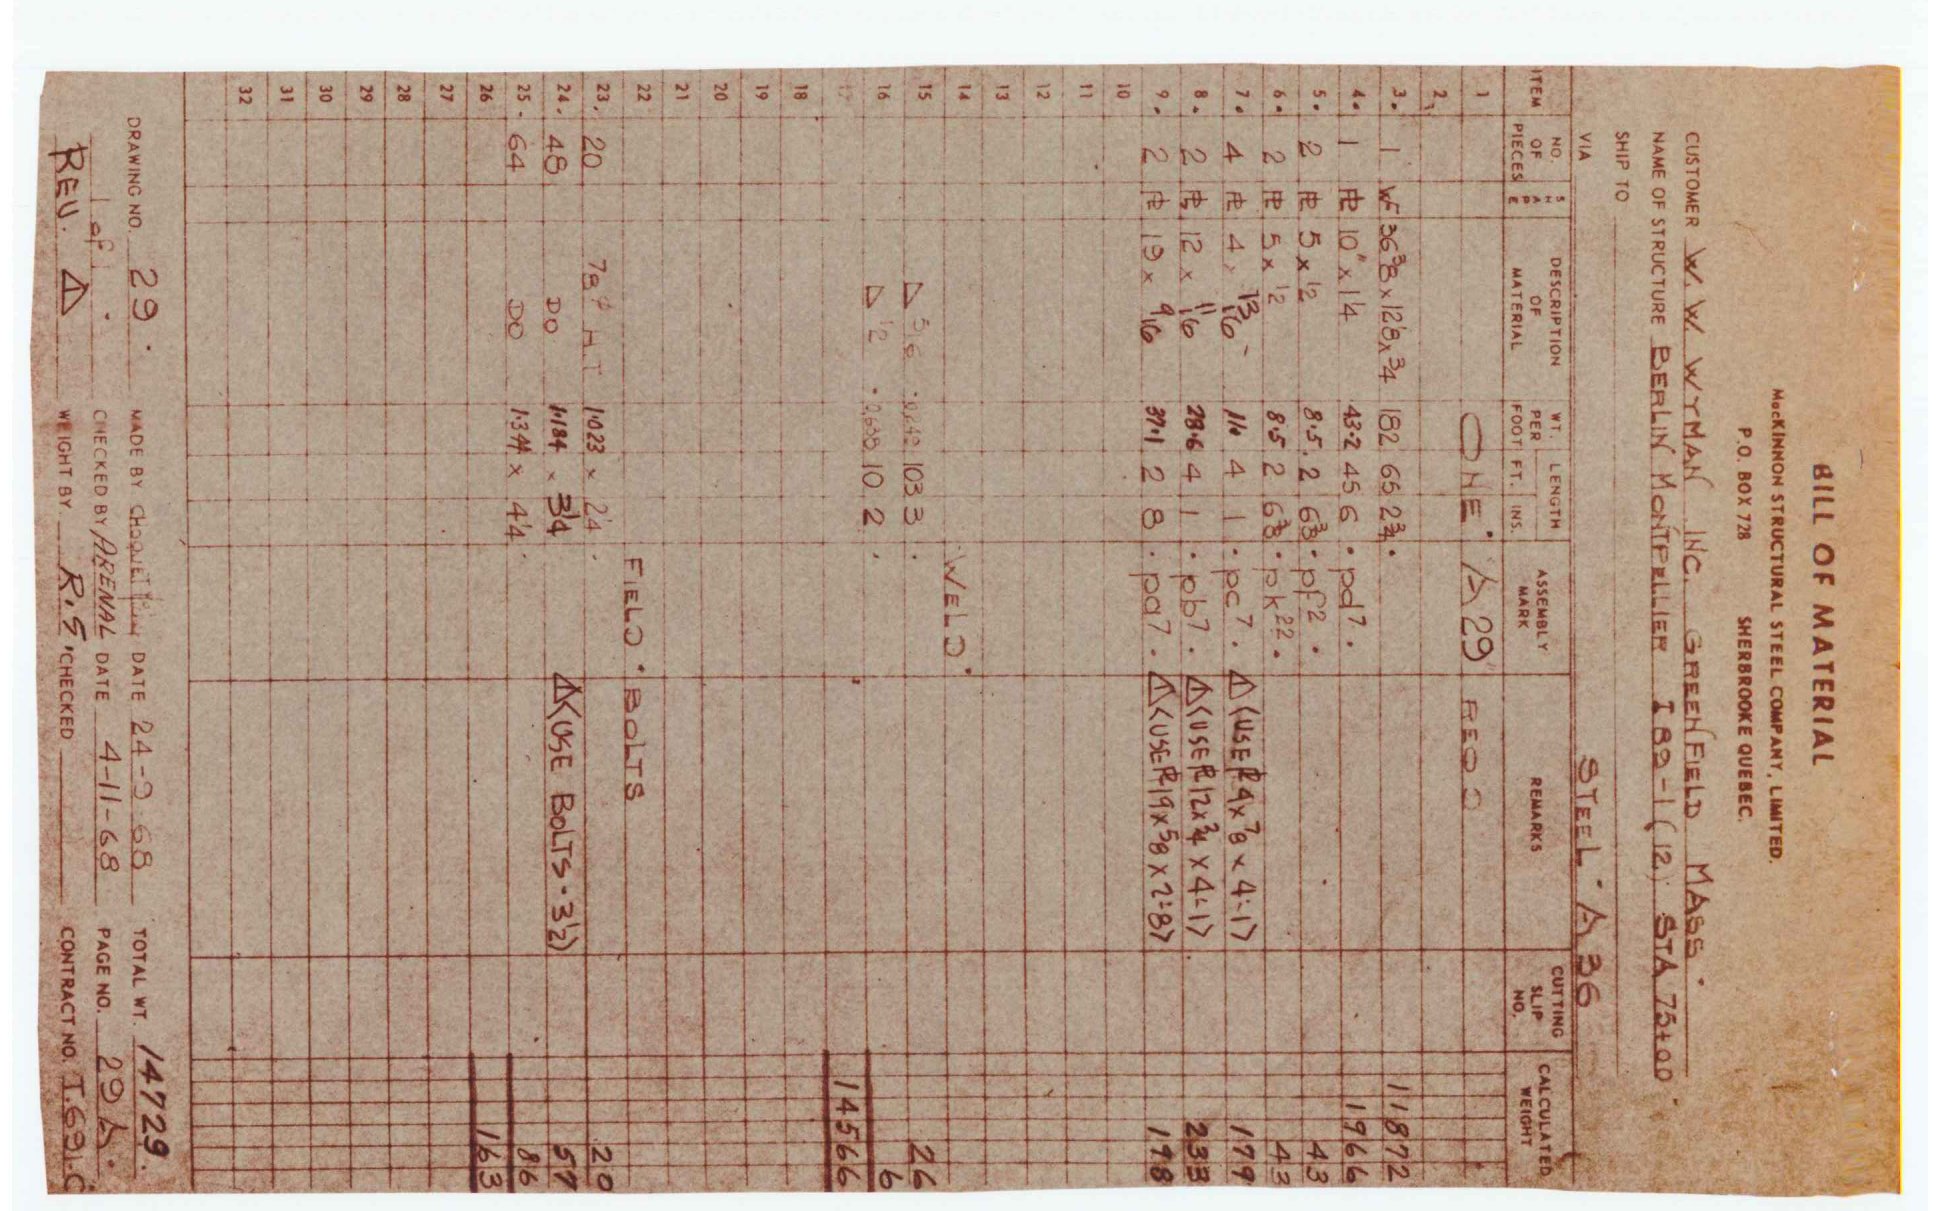 BILL OF MATERIAL
MacKINNON STRUCTURAL STEEL COMPANY, LIMITED.
P.O. BOX 728 SHERBROOKE QUEBEC.
CUSTOMER W. W. WYMAN INC. GREENFIELD MASS.
NAME OF STRUCTURE BERLIN MONTPELLIER I 89-1 (12) STA 75+00
SHIP TO
VIA STEEL A 36
ITEM NO. OF PIECES SHAPE DESCRIPTION OF MATERIAL WT. PER FOOT LENGTH FT. INS. ASSEMBLY MARK REMARKS CUTTING SLIP NO. CALCULATED WEIGHT
1 ONE A 29 REQD
2
3. 1 WF 36 3/8 x 12 1/8 x 3/4 182 65 2 3/4 11872
4. 1 PL 10" x 1 1/4 43.2 45 6 pd7 1966
5. 2 PL 5 x 1/2 8.5 2 6 3/8 pf2 43
6. 2 PL 5 x 1/2 8.5 2 6 3/8 pk22 43
7. 4 PL 4 x 13/16 11. 4 1 pc7 △ (USE PL 4 x 7/8 x 4-1) 179
8. 2 PL 12 x 11/16 28.6 4 1 pb7 △ (USE PL 12 x 3/4 x 4-1) 233
9. 2 PL 19 x 9/16 37.1 2 8 pa7 △ (USE PL 19 x 5/8 x 2-8) 198
10
11
12
13
14 WELD
15 △ 5/16 103 3 26
16 △ 1/2 10 2 6
17 14566
18
19
20
21
22 FIELD BOLTS
23. 20 7/8 φ H.T 1.023 x 2 1/4 20
24. 48 DO 1.184 x 3 1/4 △ (USE BOLTS - 3 1/2) 57
25. 64 DO 1.344 x 4 1/4 86
26 163
27
28
29
30
31
32
DRAWING NO. 29 MADE BY Choquette DATE 24-9-68 TOTAL WT. 14729.
1 of CHECKED BY ARENAL DATE 4-11-68 PAGE NO. 29 A
REV. △ WEIGHT BY R.S. CHECKED CONTRACT NO. T.691-C